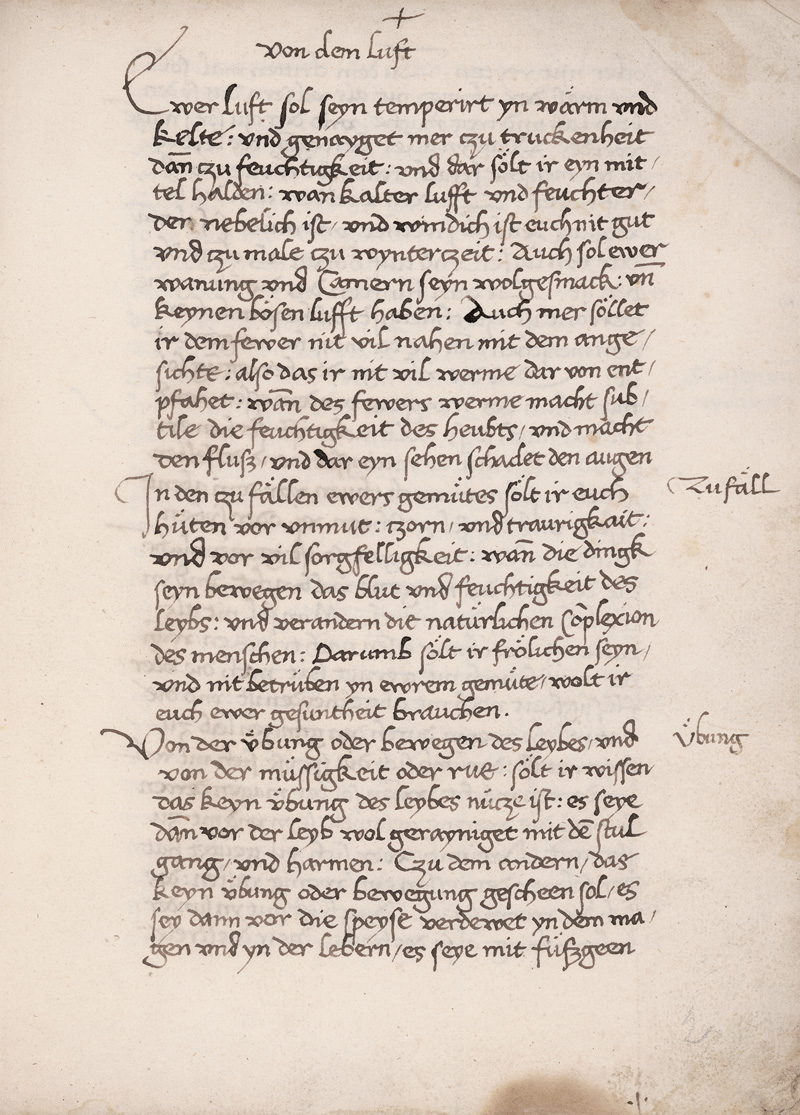 Von dem Luft
Ewer luft sol seyn temperirt yn wärm vnd
kelte: vnd genayget mer czu truckenheit
dan̄ czu feuchtigkeit: vnd dar sölt ir eyn mit/
tel halden: wan̄ kalter lufft vnd feuchter/
der nebelich ist/ vnd windich ist euch nit gut
vnd czu male czu wynterczeit: Auch sol ewer
wanung vnd Camern seyn wolgesmack: vn̄
keynen bösen lufft haben: Auch mer söllet
ir dem fewer nit vil nahen mit dem ange/
sichte: also das ir nit vil werme dar von ent/
pfahet: wan̄ des fewers werme macht sub/
tile die feuchtigkeit des heubts/ vnd macht
den fluß/ vnd dar eyn sehen schadet den augen
In den czu fällen ewers gemütes sölt ir euch
Zufäll
hüten vor vnmut: czorn/ vnd traurigkait:
vnd vor vil sorgfelligkeit: wan̄ die dingk
seyn bewegen das blut vnd feuchtigkeit des
leybs: vnd verandern die natürlichen Cōplexion
des menschen: Darumb sölt ir frölichen seyn/
vnd nit betrüben yn ewrem gemüte/ wolt ir
euch ewer gesuntheit brauchen.
Von der v̈bung oder bewegen des leybes/ vnd
V̈bung
von der müssigkeit oder rue: sölt ir wissen
das keyn v̈bung des leybes nücze ist: es seye
dan̄ vor der leyb wol gerayniget mit dē stul
gang/ vnd harmen: Czu dem andern/ das
keyn v̈bung oder bewegung gescheen sol/ es
sey dann vor die speyse verdewet yn dem ma/
gen vnd yn der lebern/ es seye mit füßgeen